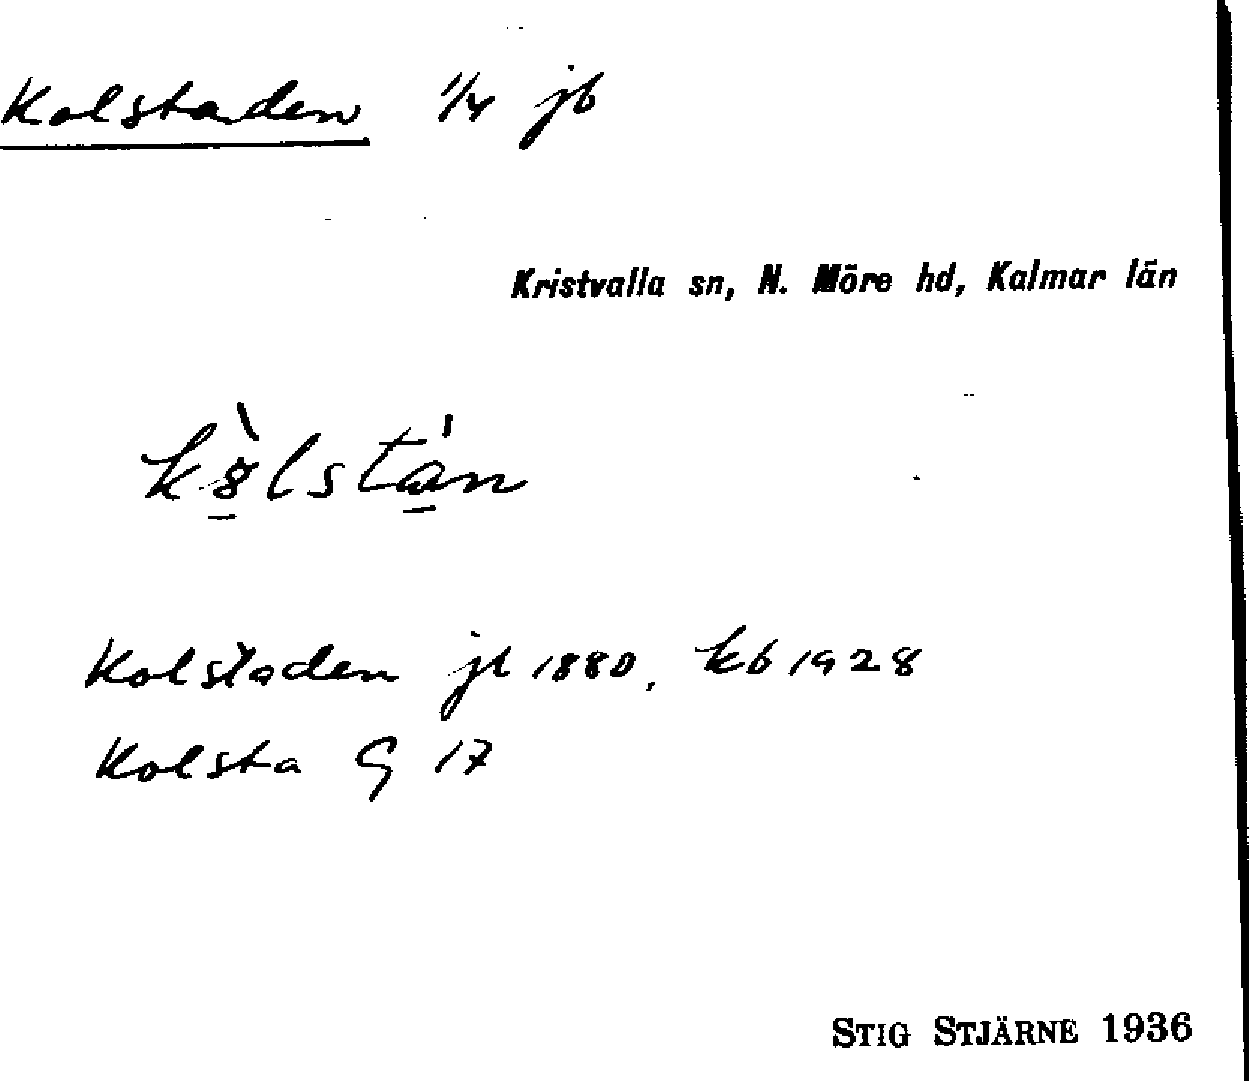 Kolstaden 1/4 jb
Kristvalla sn, N. Möre hd, Kalmar län
Kolstaden jb 1880, kb 1928
Kolsta G 17
STIG STJÄRNE 1936